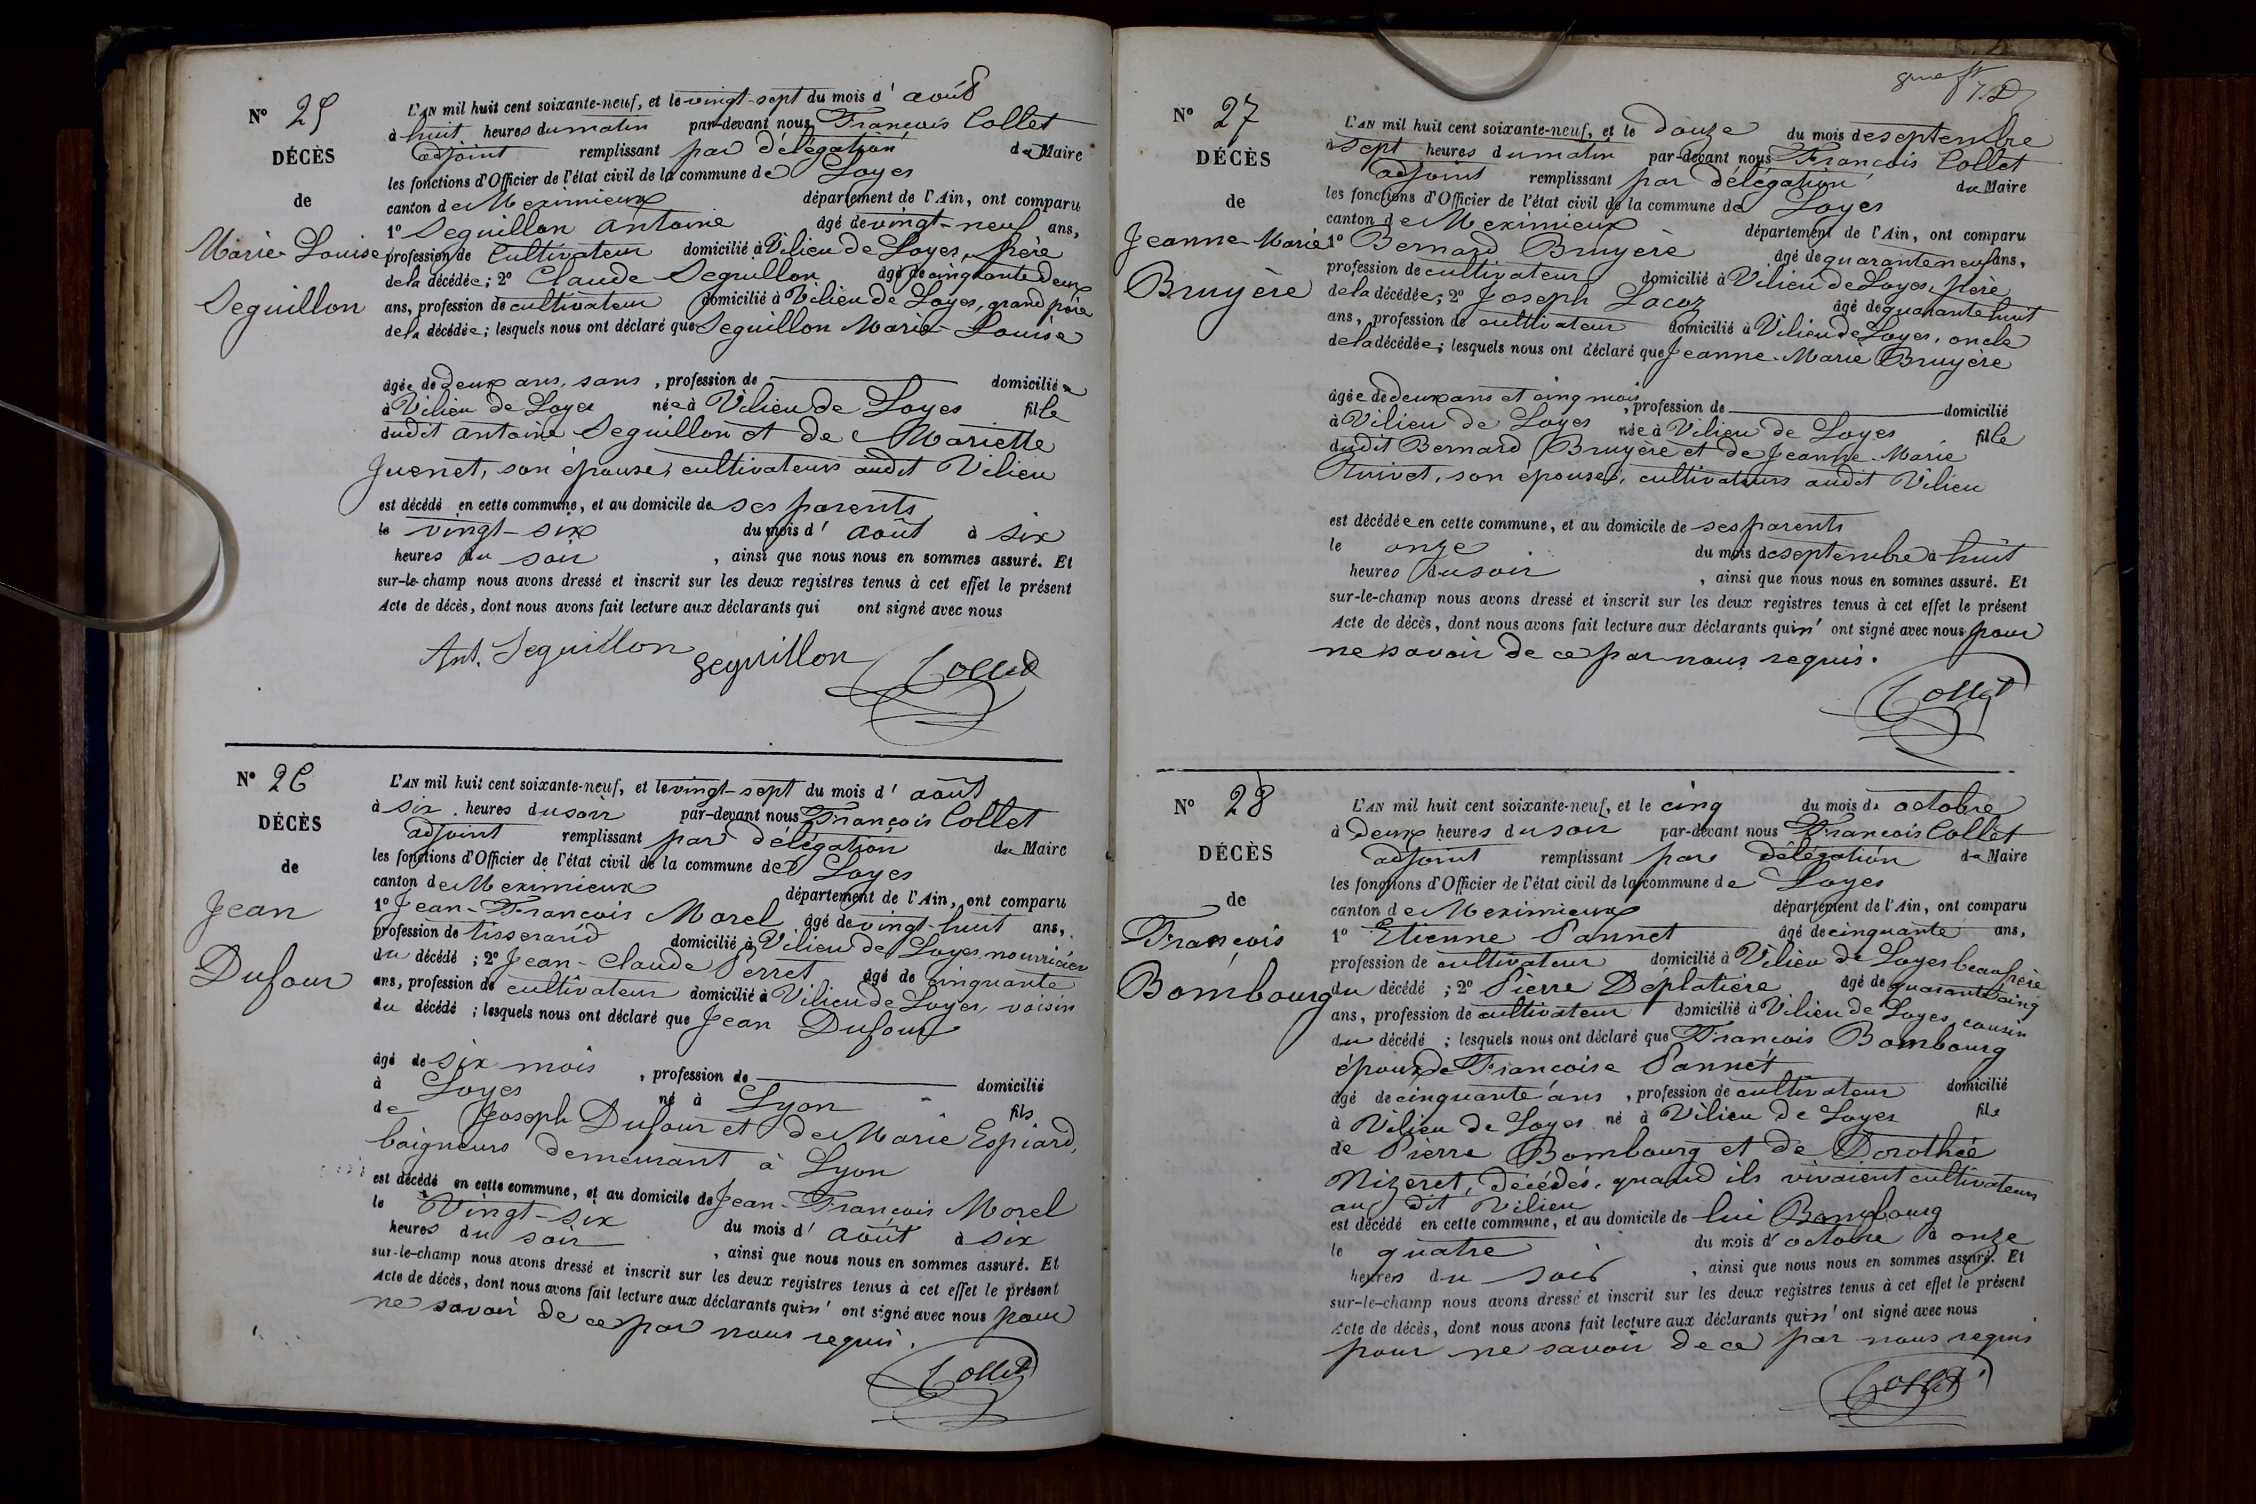 Nº 25
DÉCÈS
de
Marie Louise
Seguillon
L'AN mil huit cent soixante-neuf, et le vingt-sept du mois d' août
à huit heures du matin par-devant nous François Collet
adjoint remplissant par délégation du Maire
les fonctions d'Officier de l'état civil de la commune de Loyes
canton de Meximieux département de l'Ain, ont comparu
1º Seguillon Antoine âgé de vingt-neuf ans,
profession de Cultivateur domicilié à Vilieu de Loyes, père
de la décédée; 2º Claude Seguillon âgé de cinquante deux
ans, profession de cultivateur domicilié à Vilieu de Loyes, grand père
de la décédée; lesquels nous ont déclaré que Seguillon Marie-Louise
âgée de deux ans, sans, profession de domiciliée
à Vilieu de Loyes née à Vilieu de Loyes fille
dudit Antoine Seguillon et de Mariette
Juenet, son épouse, cultivateurs audit Vilieu
est décédé en cette commune, et au domicile de ses parents
le vingt-six du mois d' août à six
heures du soir, ainsi que nous nous en sommes assuré. Et
sur-le-champ nous avons dressé et inscrit sur les deux registres tenus à cet effet le présent
Acte de décès, dont nous avons fait lecture aux déclarants qui ont signé avec nous
Ant. Seguillon Seguillon Collet
Nº 26
DÉCÈS
de
Jean
Dufour
L'AN mil huit cent soixante-neuf, et le vingt-sept du mois d' août
à six heures du soir par-devant nous François Collet
adjoint remplissant par délégation du Maire
les fonctions d'Officier de l'état civil de la commune de Loyes
canton de Meximieux département de l'Ain, ont comparu
1º Jean-François Morel âgé de vingt-huit ans,
profession de tisserand domicilié à Vilieu de Loyes nourricier
du décédé; 2º Jean-Claude Perret âgé de cinquante
ans, profession de cultivateur domicilié à Vilieu de Loyes, voisin
du décédé; lesquels nous ont déclaré que Jean Dufour
âgé de six mois, profession de domicilié
à Loyes né à Lyon fils
de Joseph Dufour et de Marie Espiard,
baigneurs demeurant à Lyon
est décédé en cette commune, et au domicile de Jean-François Morel
le Vingt-six du mois d' août à six
heures du soir, ainsi que nous nous en sommes assuré. Et
sur-le-champ nous avons dressé et inscrit sur les deux registres tenus à cet effet le présent
Acte de décès, dont nous avons fait lecture aux déclarants qui n' ont signé avec nous pour
ne savoir de ce par nous requis.
Collet
Nº 27
DÉCÈS
de
Jeanne-Marie
Bruyère
L'AN mil huit cent soixante-neuf, et le douze du mois de septembre
à sept heures du matin par-devant nous François Collet
adjoint remplissant par délégation du Maire
les fonctions d'Officier de l'état civil de la commune de Loyes
canton de Meximieux département de l'Ain, ont comparu
1º Bernard Bruyère âgé de quarante neuf ans,
profession de cultivateur domicilié à Vilieu de Loyes, père
de la décédée; 2º Joseph Lacoz âgé de quarante huit
ans, profession de cultivateur domicilié à Vilieu de Loyes, oncle
de la décédée; lesquels nous ont déclaré que Jeanne-Marie Bruyère
âgée de deux ans et cinq mois, profession de domicilié
à Vilieu de Loyes née à Vilieu de Loyes fille
dudit Bernard Bruyère et de Jeanne-Marie
Ruivet, son épouse, cultivateurs audit Vilieu
est décédée en cette commune, et au domicile de ses parents
le onze du mois de septembre à huit
heures du soir, ainsi que nous nous en sommes assuré. Et
sur-le-champ nous avons dressé et inscrit sur les deux registres tenus à cet effet le présent
Acte de décès, dont nous avons fait lecture aux déclarants qui n' ont signé avec nous pour
ne savoir de ce par nous requis.
Collet
Nº 28
DÉCÈS
de
François
Bombourg
L'AN mil huit cent soixante-neuf, et le cinq du mois d' octobre
à deux heures du soir par-devant nous François Collet
adjoint remplissant par délégation du Maire
les fonctions d'Officier de l'état civil de la commune de Loyes
canton de Meximieux département de l'Ain, ont comparu
1º Etienne Pannet âgé de cinquante ans,
profession de cultivateur domicilié à Vilieu de Loyes beau frère
du décédé; 2º Pierre Déplatière âgé de quarante cinq
ans, profession de cultivateur domicilié à Vilieu de Loyes cousin
du décédé; lesquels nous ont déclaré que François Bombourg
époux de Françoise Pannet
âgé de cinquante ans, profession de cultivateur domicilié
à Vilieu de Loyes né à Vilieu de Loyes fils
de Pierre Bombourg et de Dorothée
Nizeret, décédés, quand ils vivaient cultivateurs
au dit Vilieu
est décédé en cette commune, et au domicile de lui Bombourg
le quatre du mois d' octobre à onze
heures du soir, ainsi que nous nous en sommes assuré. Et
sur-le-champ nous avons dressé et inscrit sur les deux registres tenus à cet effet le présent
Acte de décès, dont nous avons fait lecture aux déclarants qui n' ont signé avec nous
pour ne savoir de ce par nous requis
Collet